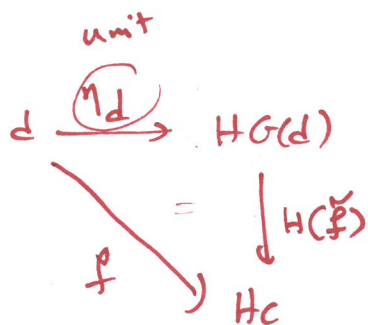 unit
η_d
d → HG(d)
= H(f̃)
f
Hc